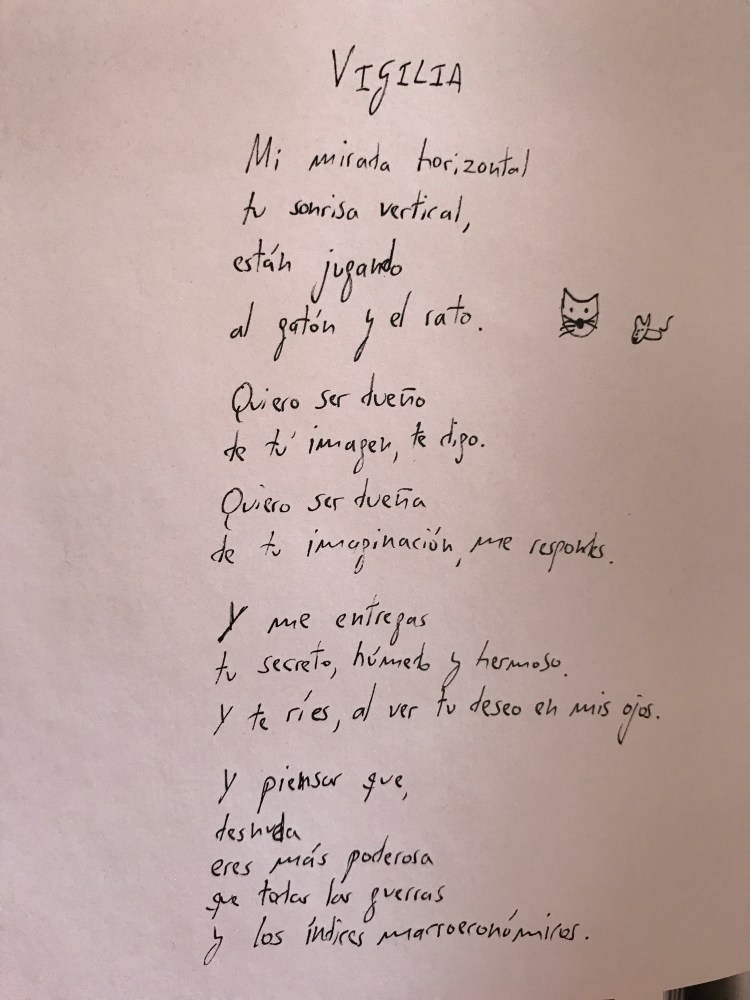 VIGILIA
Mi mirada horizontal
tu sonrisa vertical,
están jugando
al gatón y el rato.
Quiero ser dueño
de tu imagen, te digo.
Quiero ser dueña
de tu imaginación, me respondes.
Y me entregas
tu secreto, húmedo y hermoso.
Y te ríes, al ver tu deseo en mis ojos.
Y piensas que,
desnuda
eres más poderosa
que todas las guerras
y los índices macroeconómicos.